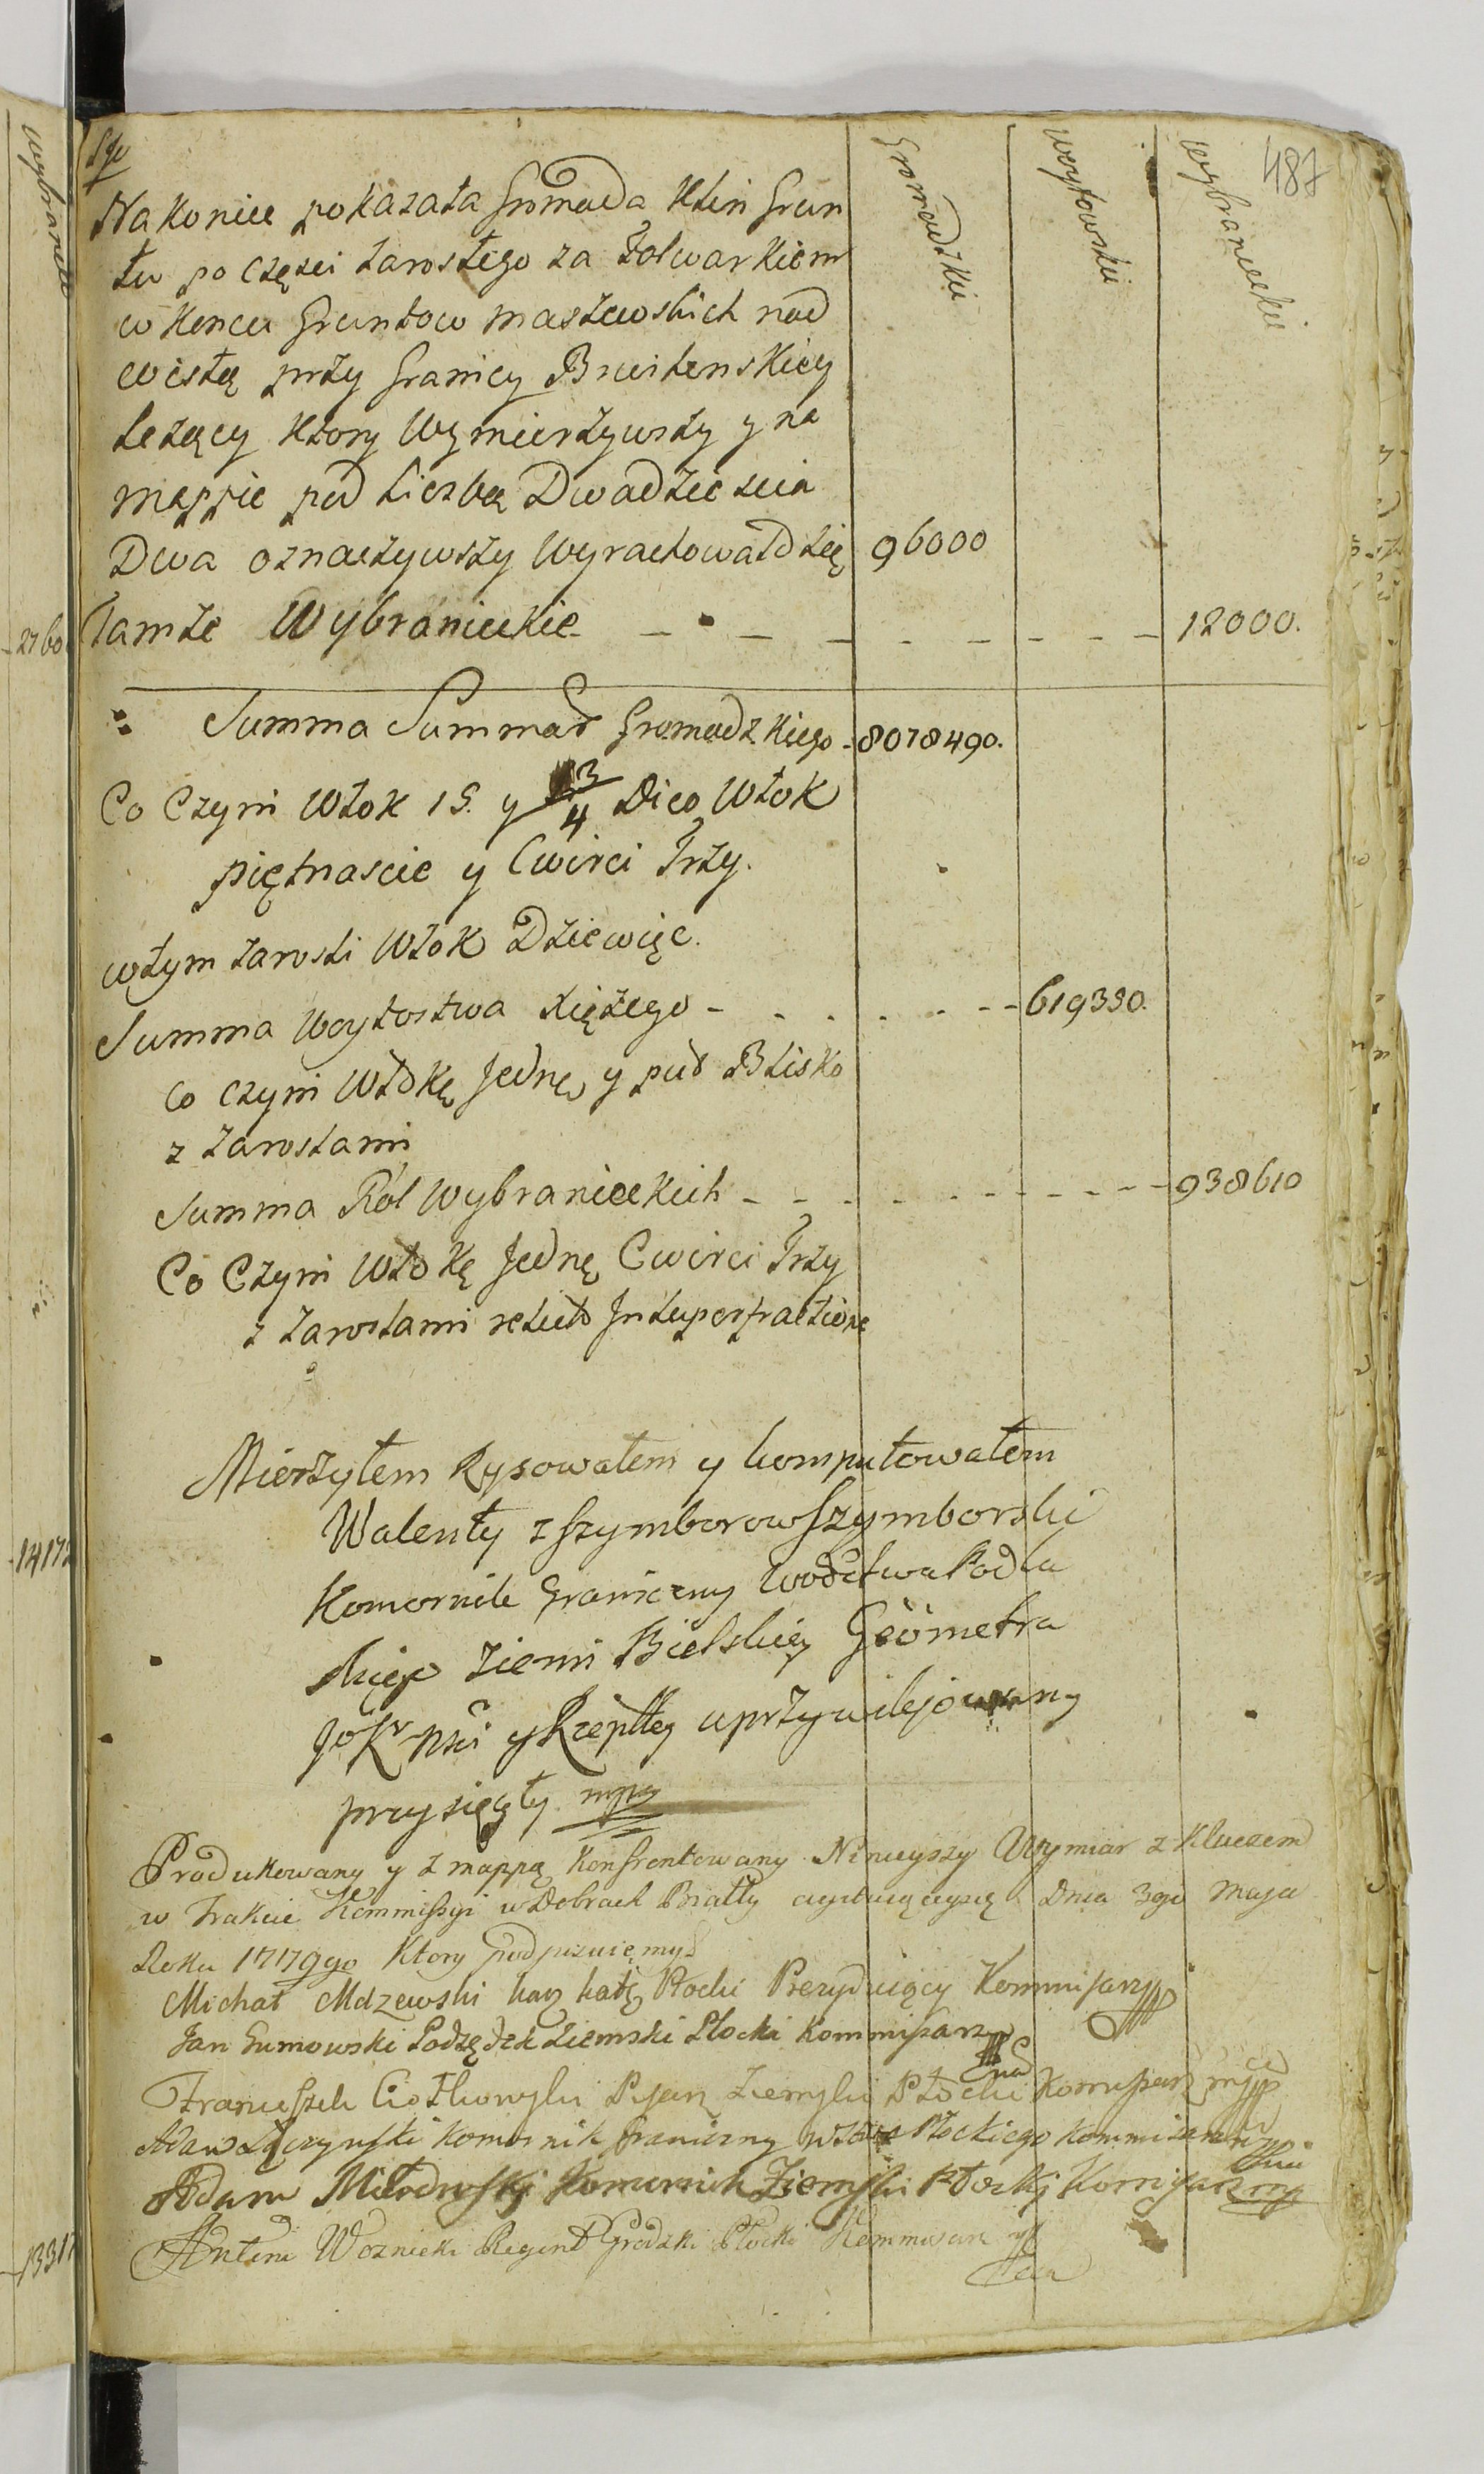 487
Gromadzkie woytowskie wybranieckie
Na koniec pokazała Gromada klin Grun
tu po częzci zarosłego za Folwarkiem
w koncu Gruntow maszewskich nad
wisłą przy Granicy Brwilenskiey
Leżący ktory Wymierzywszy y na
mappie pod Liczbą Dwadziescia
Dwa oznaczywszy Wyrachowałd się 96000
Tamże Wybranieckie - - - - - - - - - 12000.
Summa Summar Gromadzkiego - 8078490.
Co Czyni Włok 15. y 3/4 Dico Włok
piętnascie y Cwirci Trzy.
wtym zarosli Włok Dziewięc.
Summa Woytostwa Xiężego - - - - - - - 619330.
co czyni Włokę Jednę y puł Blisko
z zaroslami
Summa Ról Wybranieckich - - - - - - - - - 938610
Co Czyni Włokę Jednę Cwirci Trzy
z Zaroslami
Mierzyłem Rysowałem y komputowałem
Walenty z Szymborow Szymborski
Komornik Graniczny Wodztwa Podla
skiego Ziemi Bielskiey Geometra
JoKr Mci y Rzeplltey uprzywilejowany
przysięgły mpp
Produkowany y z mappą konfrontowany Ninieyszy Wymiar z Kluczem
w Trakcie Kommissyi w Dobrach Biały Dnia 3go Maja
Roku 1779go Ktory podpisuięmy
Michał Mdzewski Płocki Prezyduiący Kommissarz
Jan Gumowski Podsędek Ziemski Płocki Kommissarz
Franciszek Ciołkowski Pisarz Ziemski Płocki Komissarz mpp
Adam Łączyński komornik Graniczny wztwa Płockiego kommissarz
Adam Komornik Ziemski Płocki Komisarz mp
Antoni Woznicki Regent Grodzki Płocki Kommissarz
wybranieckie
2760
14172